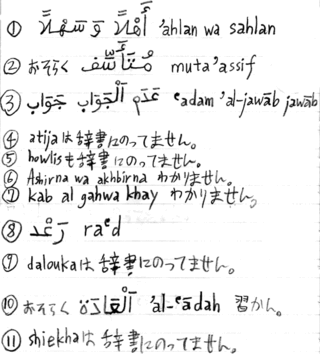 ① أَهْلًا وَ سَهْلًا 'ahlan wa sahlan
② おそらく مُتَأَسِّف muta'assif
③ عَدَم اَلْجَوَاب جَوَاب ᶜadam 'al-jawāb jawāb
④ atijaは辞書にのってません。
⑤ howlisも辞書にのってません。
⑥ Ashirna wa akhbirna わかりません。
⑦ kab al gahwa khay わかりません。
⑧ رَعْد raᶜd
⑨ daloukaは辞書にのってません。
⑩ おそらく اَلْعَادَة 'al-ᶜādah 習かん。
⑪ shiekhaは辞書にのってません。